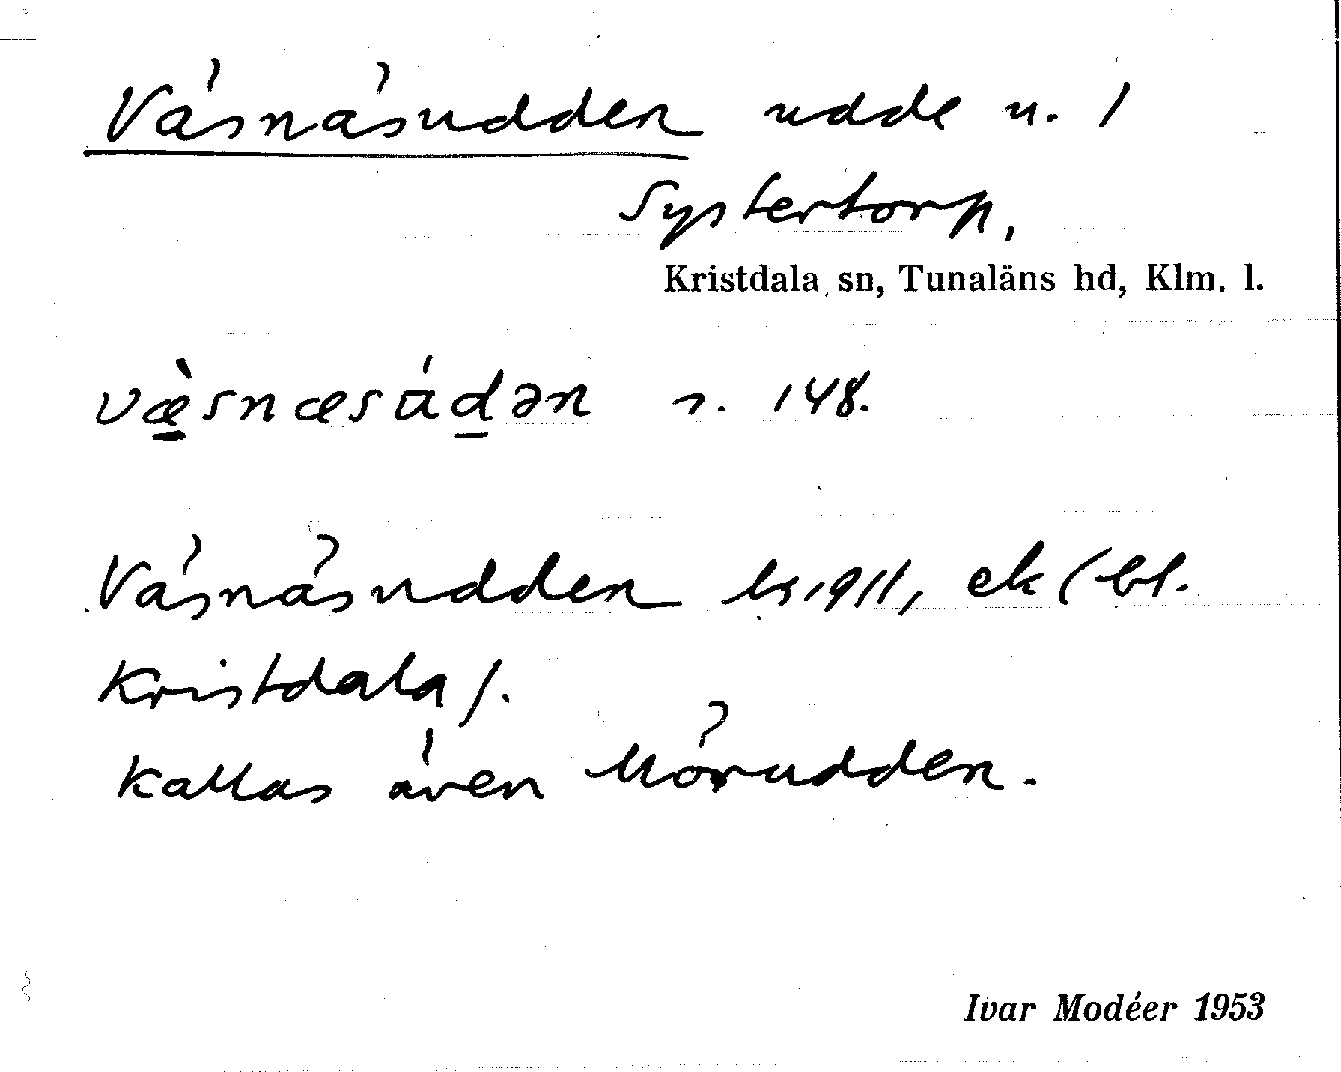 Väsnäsudden udde u. 1
Systertorp,
Kristdala sn, Tunaläns hd, Klm. l.
væ̀snæsúdən r. 148.
Väsnäsudden ks 1911, ek (bl.
Kristdala).
Kallas även Mörudden.
Ivar Modéer 1953